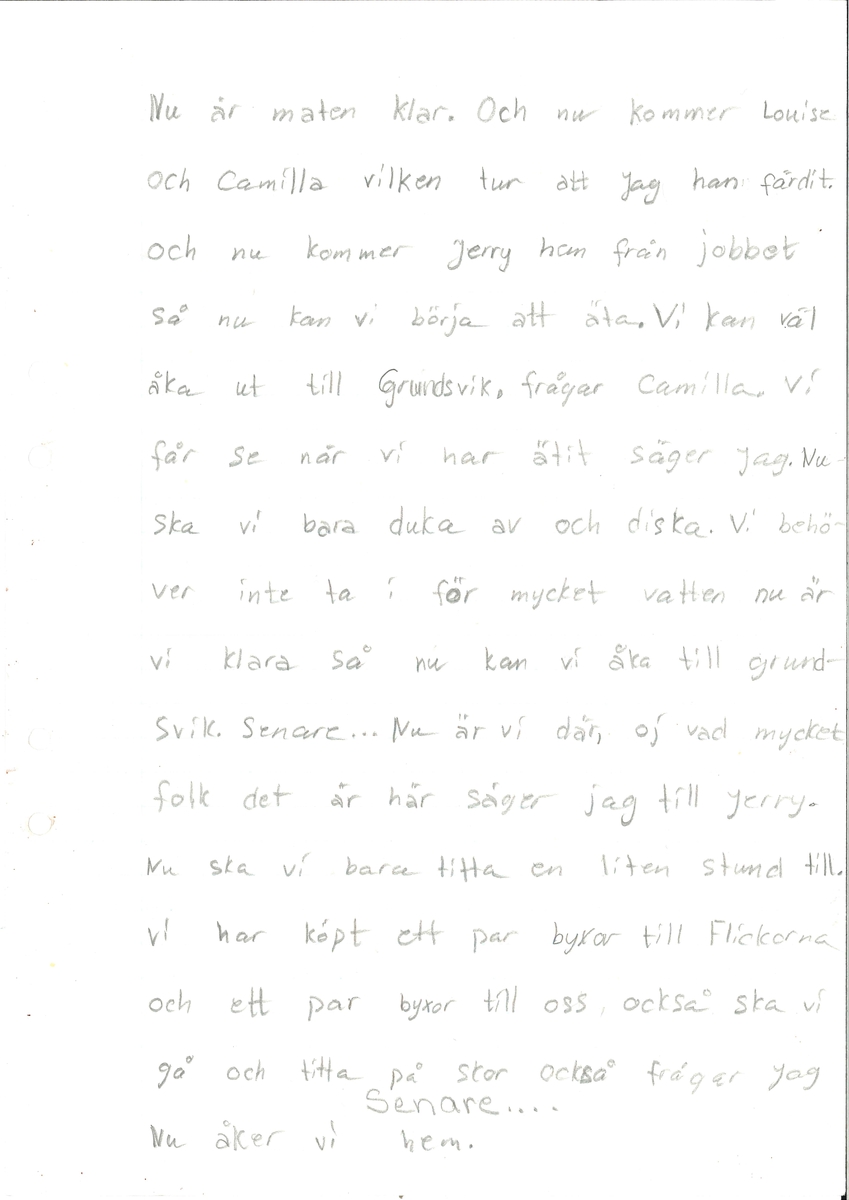 Nu är maten klar. Och nu kommer Louise
och Camilla vilken tur att jag han färdit.
och nu kommer Jerry han från jobbet
så nu kan vi börja att äta. Vi kan väl
åka ut till Grundsvik, frågar Camilla. Vi
får se när vi har ätit säger jag. Nu
ska vi bara duka av och diska. Vi behö-
ver inte ta i för mycket vatten nu är
vi klara så nu kan vi åka till grund-
svik. Senare... Nu är vi där, oj vad mycket
folk det är här säger jag till Jerry.
Nu ska vi bara titta en liten stund till.
vi har köpt ett par byxor till Flickorna
och ett par byxor till oss, också ska vi
gå och titta på skor också frågar jag
Senare....
Nu åker vi hem.